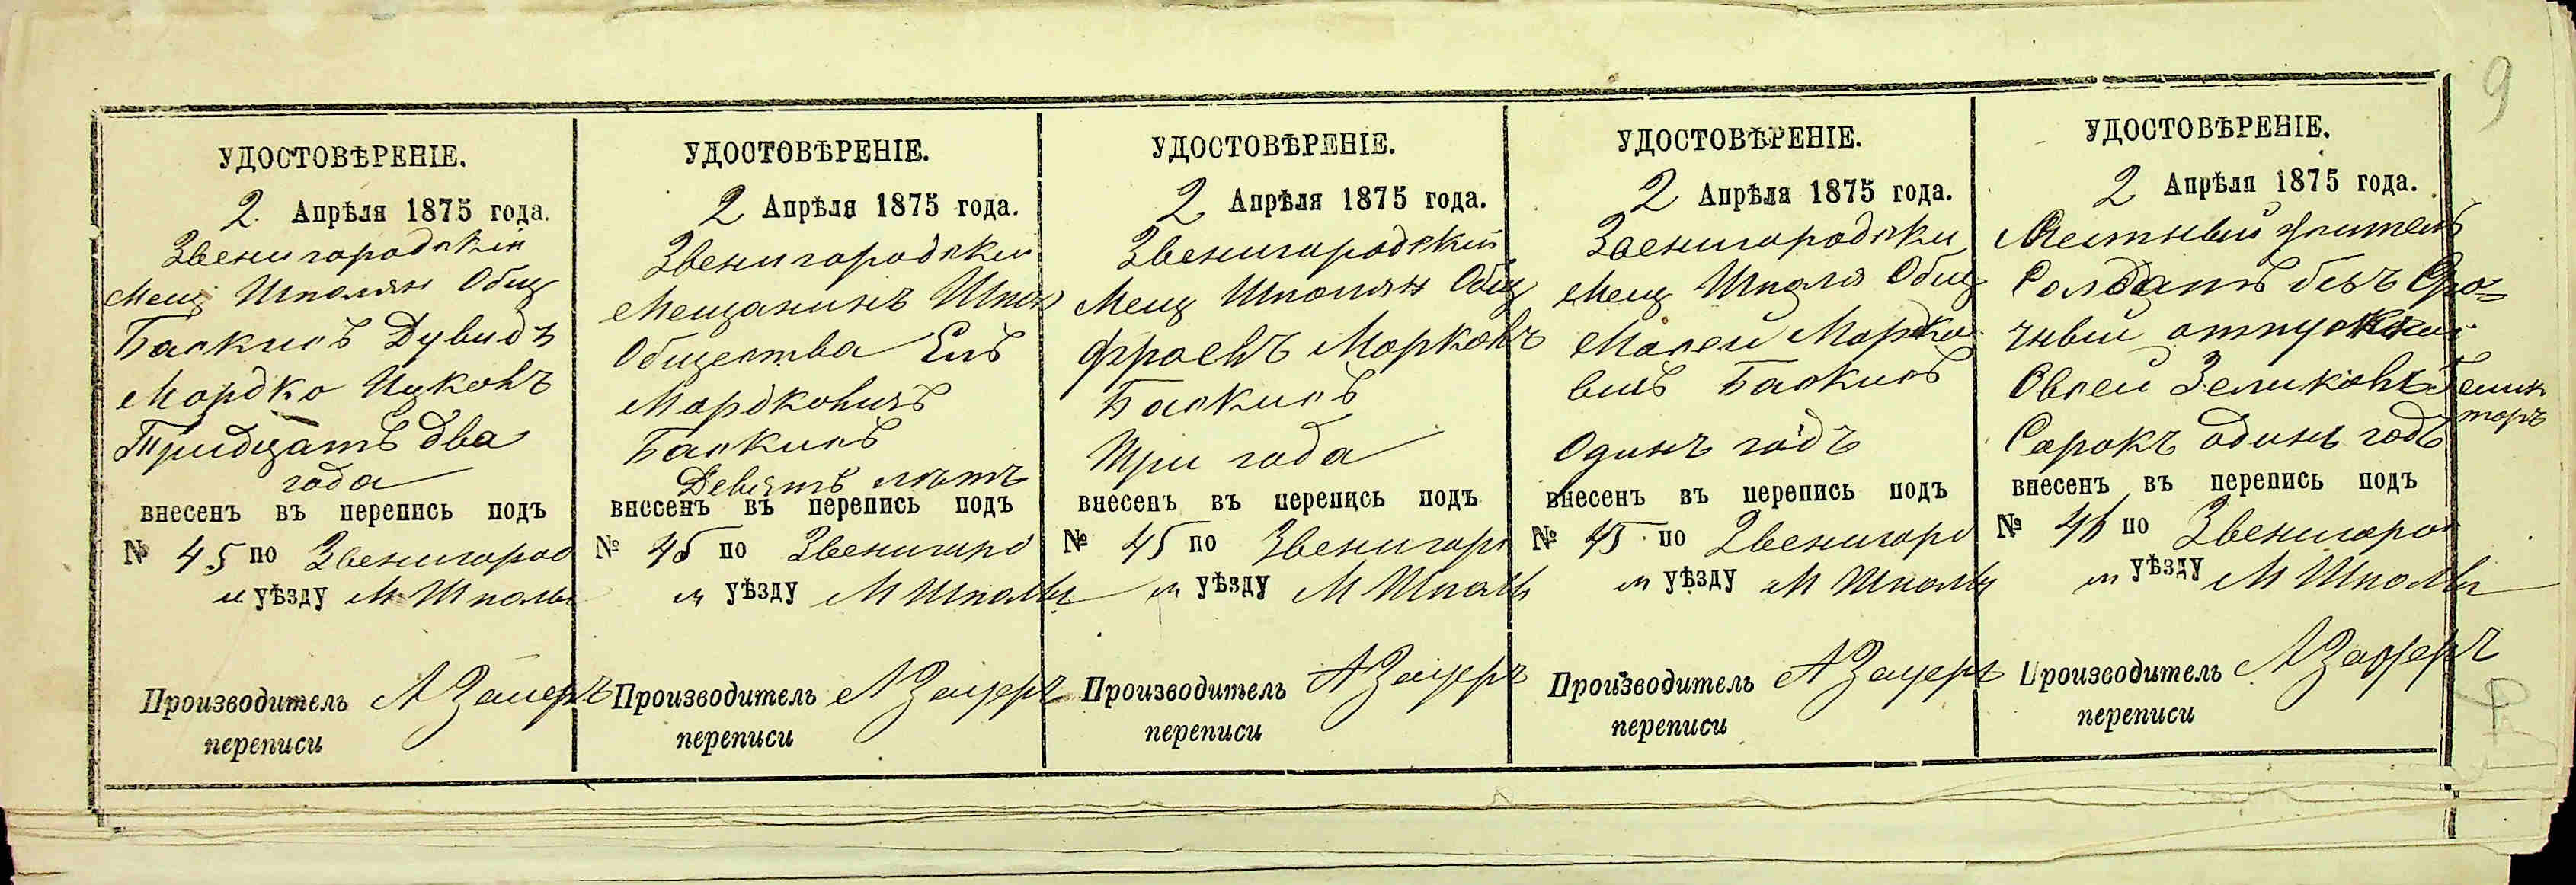 9
УДОСТОВѢРЕНІЕ.
2. Апрѣля 1875 года.
Звенигородскій
Мещ Шполян Общ
Баскисъ Дувидъ
Мордко Ицковъ
Тридцать два
года
внесенъ въ перепись подъ
№ 45 по Звенигород
м уѣзду М Шполы
Производитель А Зауеръ
переписи
УДОСТОВѢРЕНІЕ.
2 Апрѣля 1875 года.
Звенигородскій
Мещанинъ Шпол
Общества Елъ
Мордковичъ
Баскисъ
Девять лѣтъ
внесенъ въ перепись подъ
№ 45 по Звенигоро
м уѣзду М Шполы
Производитель А Зауеръ
переписи
УДОСТОВѢРЕНІЕ.
2 Апрѣля 1875 года.
Звенигородский
Мещ Шполян Общ
Фроевъ Морковъ
Баскисъ
Три года
внесенъ въ перепись подъ
№ 45 по Звенигоро
м уѣзду М Шполы
Производитель А Зауеръ
переписи
УДОСТОВѢРЕНІЕ.
2 Апрѣля 1875 года.
Звенигородски
Мещ Шполя Общ
Мосей Мордко
вичъ Баскисъ
Одинъ годъ
внесенъ въ перепись подъ
№ 45 по Звенигоро
м уѣзду М Шполы
Производитель А Зауеръ
переписи
УДОСТОВѢРЕНІЕ.
2 Апрѣля 1875 года.
Местный житель
Солдатъ безъ Сро-
чный отпускной
Овсей Зеликовъ
Сорокъ одинъ годъ
внесенъ въ перепись подъ
№ 46 по Звенигоро
м уѣзду М Шполы
Производитель А Зауеръ
переписи